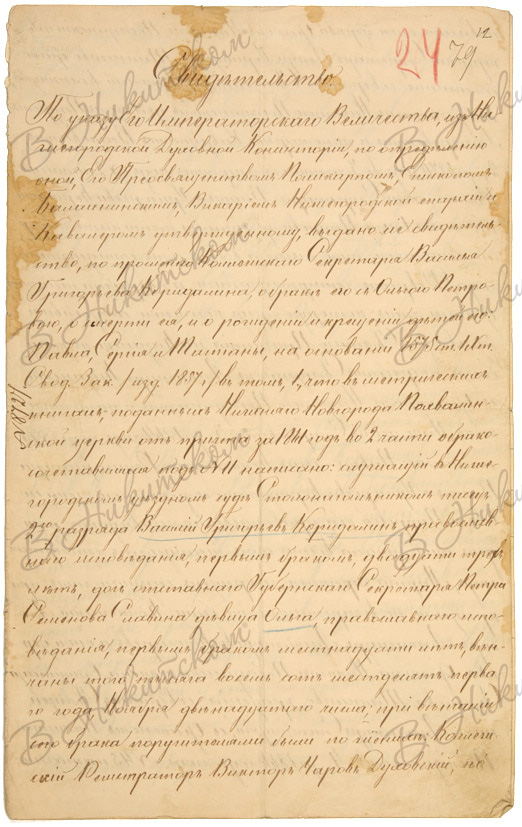 24
79
12
Свидѣтельство.
По указу Его Императорскаго Величества, изъ Ни-
жегородской Духовной Консисторіи, по опредѣленію
оной, Его Преосвященствомъ Поликарпомъ, Епископомъ
Балахнинскимъ, Викаріемъ Нижегородской епархіи и
Кавалеромъ утвержденному, выдано сіе свидѣтель-
ство, по прошенію Секретаря Василья
Григорьева о бракѣ его съ Ольгою Петро-
вою, о смерти ея, и о рожденіи и крещеніи дѣтей его
Павла, Сергія и на основаніи 1575 ст. IX т.
Свод. Зак. /изд. 1857 г/ въ томъ, что въ метрическихъ
книгахъ, поданныхъ Нижняго Новгорода Похвалин-
ской церкви отъ причта за 1861 годъ во 2 части о брако-
сочетавшихся подъ № 11 написано: служащій въ Ниже-
городскомъ уѣздномъ судѣ Столоначальникомъ писецъ
разряда Василій Григорьевъ православ-
наго исповѣданія, первымъ бракомъ, двадцати трехъ
лѣтъ, дочь отставнаго Губернскаго Секретаря Петра
Семенова Славина дѣвица Ольга, православнаго испо-
вѣданія, первымъ бракомъ шестнадцати лѣтъ, вѣн-
чаны того тысяча восемь сотъ шестьдесятъ перва-
го года Ноября двѣнадцатаго числа; при вѣнчаніи
сего брака поручителями были по женихѣ: Коллеж-
скій Регистраторъ Викторъ Духовскій, по
В. Никитском
В. Никитском
В. Никитском
В. Никитском